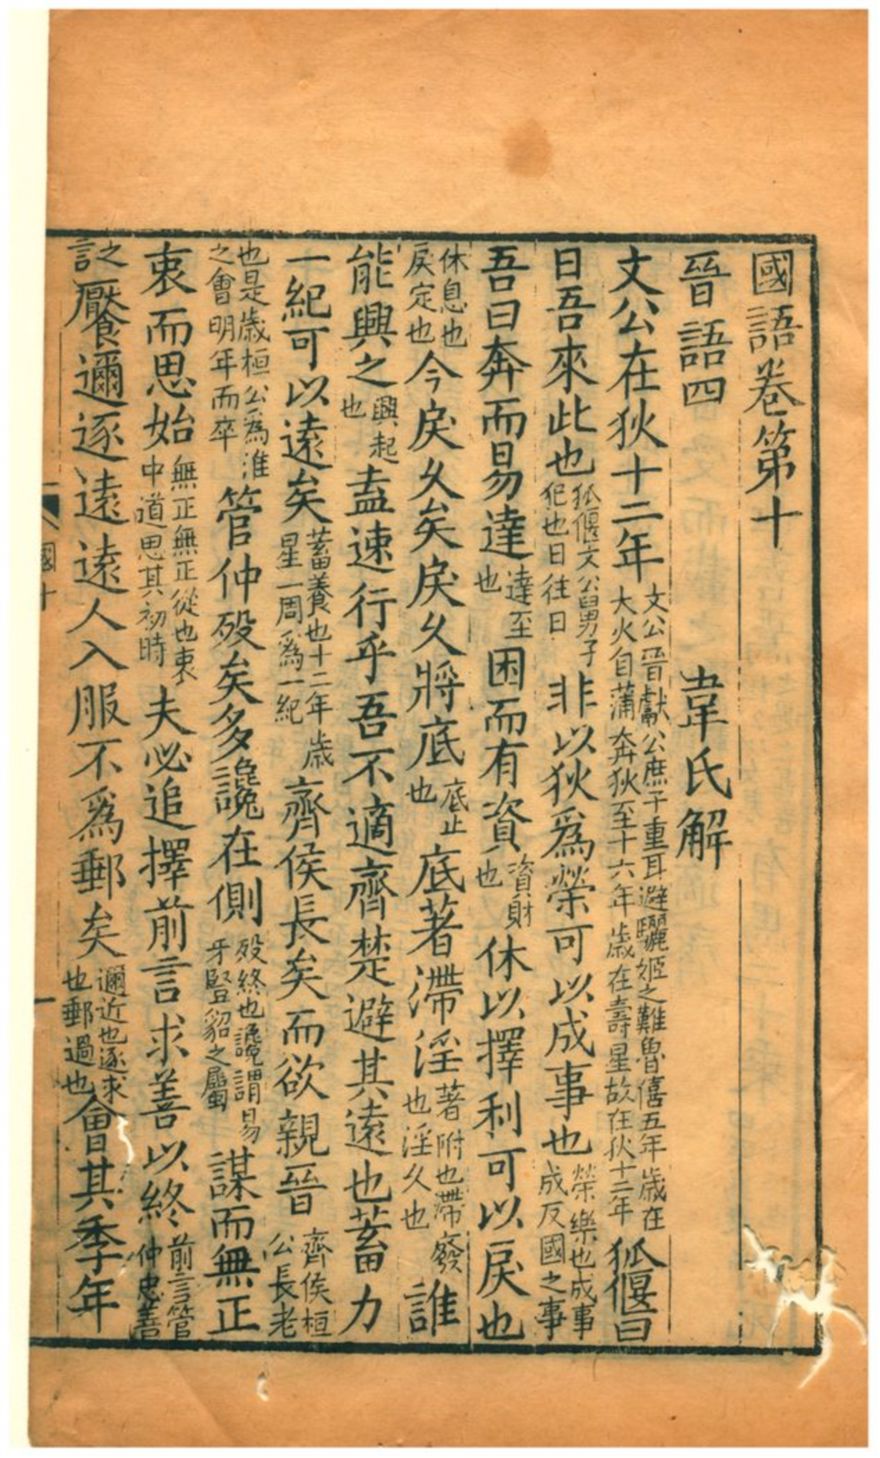 國語卷第十
晉語四　韋氏解
文公在狄十二年文公晉獻公庶子重耳避驪姬之難魯僖五年歲在大火自蒲奔狄至十六年歲在壽星故在狄十二年狐偃曰
日吾來此也狐偃文公舅子犯也日往日非以狄爲榮可以成事也榮樂也成事成反國之事
吾曰奔而易達達至也困而有資資財也休以擇利可以戾也
休息也戾定也今戾久矣戾久將底底止也底著滯淫著附也滯廢也淫久也誰
能興之興起也盍速行乎吾不適齊楚避其遠也蓄力
一紀可以遠矣蓄養也十二年歲星一周爲一紀齊侯長矣而欲親晉齊侯桓公長老
也是歲桓公爲淮之會明年而卒管仲歿矣多讒在側歿終也讒謂易牙豎貂之屬謀而無正
衷而思始無正無正從也衷中道思其初時夫必追擇前言求善以終前言管仲忠善
之言饜邇逐遠遠人入服不爲郵矣邇近也逐求也郵過也會其季年
國十